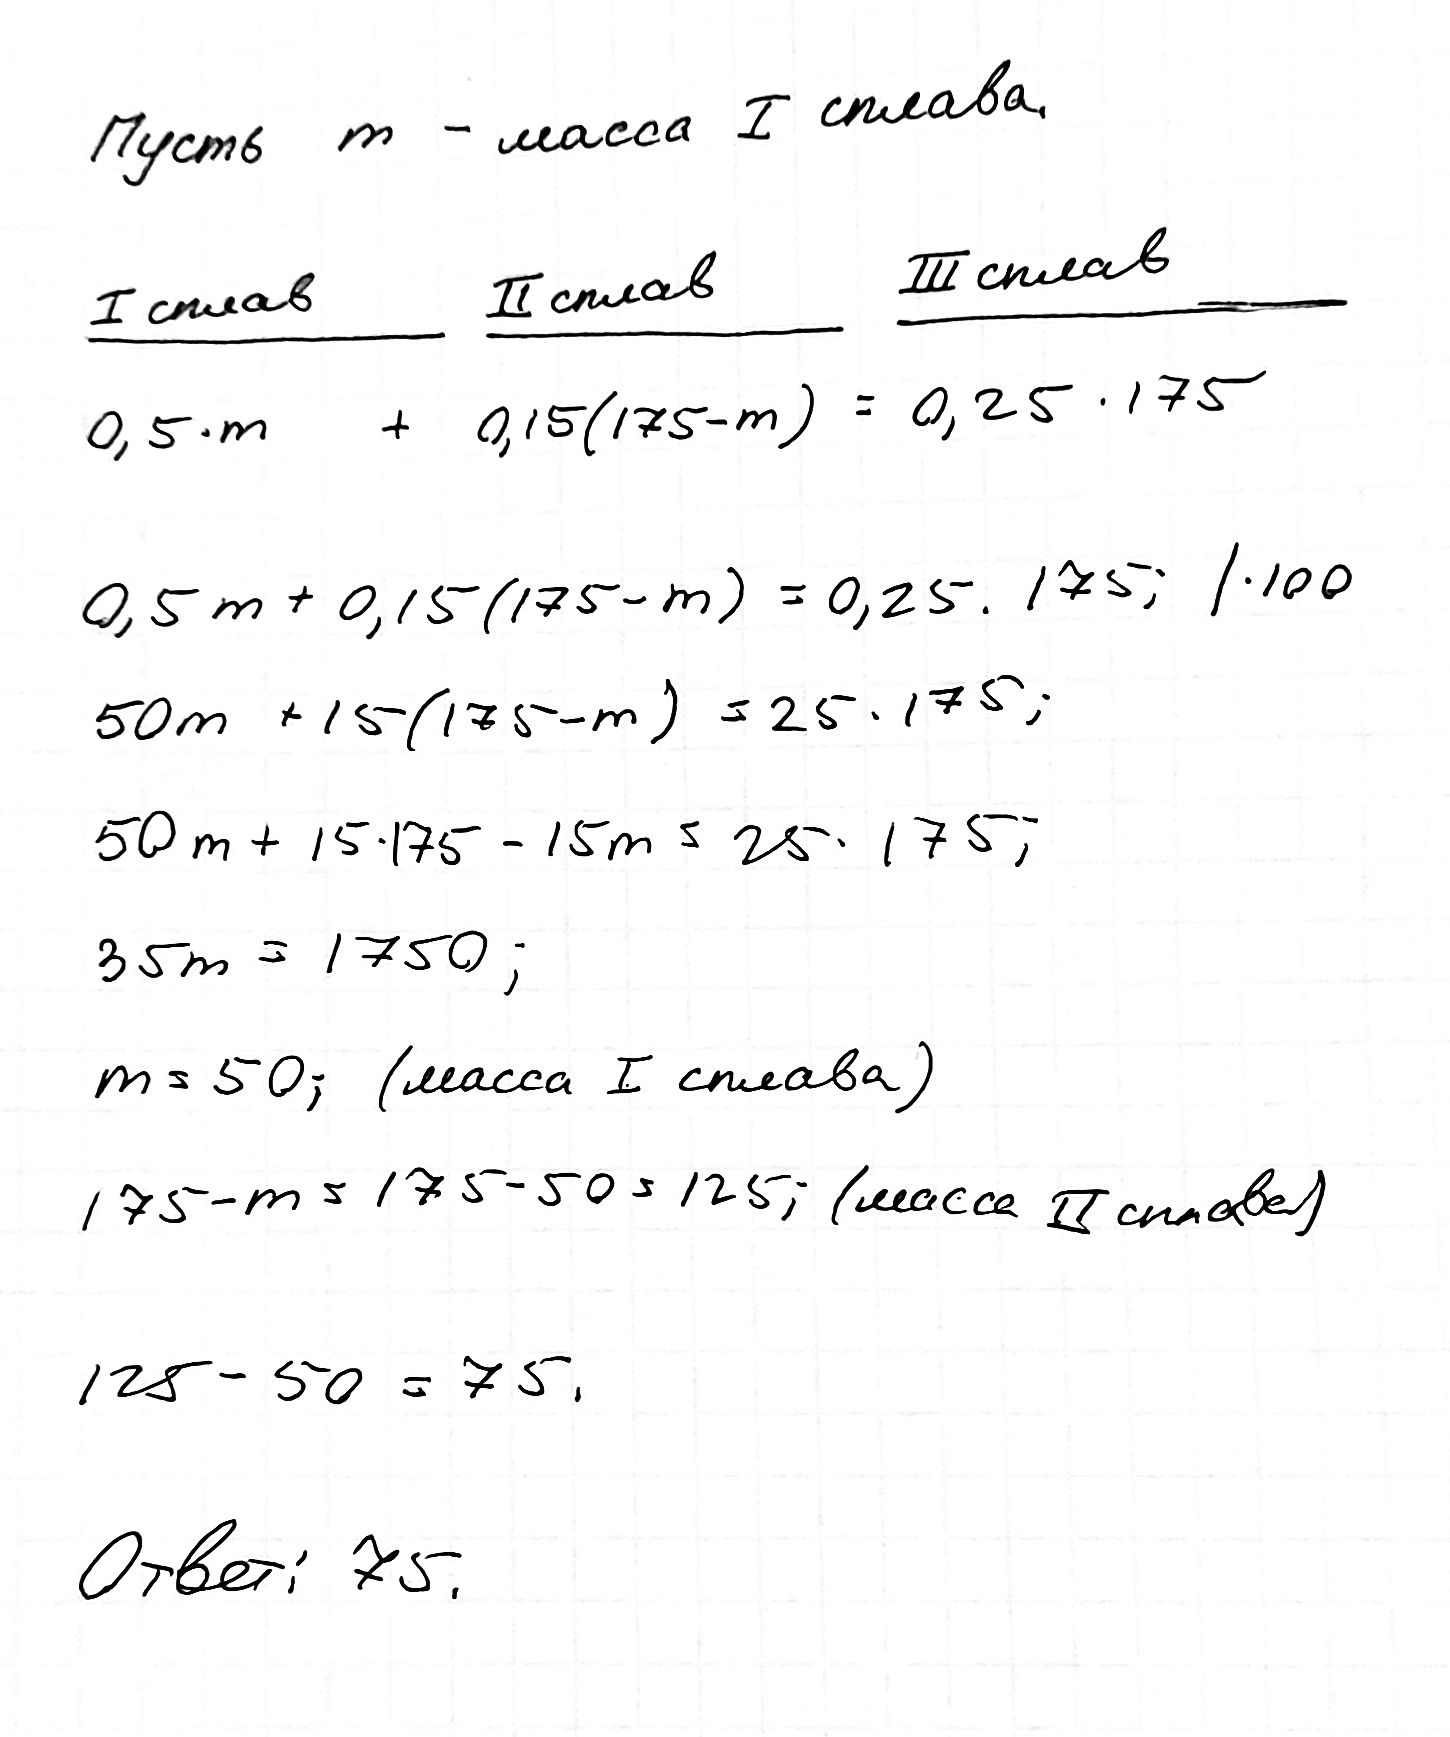 Пусть m - масса I сплава.
I сплав II сплав III сплав
0,5·m + 0,15(175-m) = 0,25·175
0,5m + 0,15(175-m) = 0,25·175; |·100
50m + 15(175-m) = 25·175;
50m + 15·175 - 15m = 25·175;
35m = 1750;
m = 50; (масса I сплава)
175-m = 175-50 = 125; (масса II сплава)
125 - 50 = 75.
Ответ: 75.